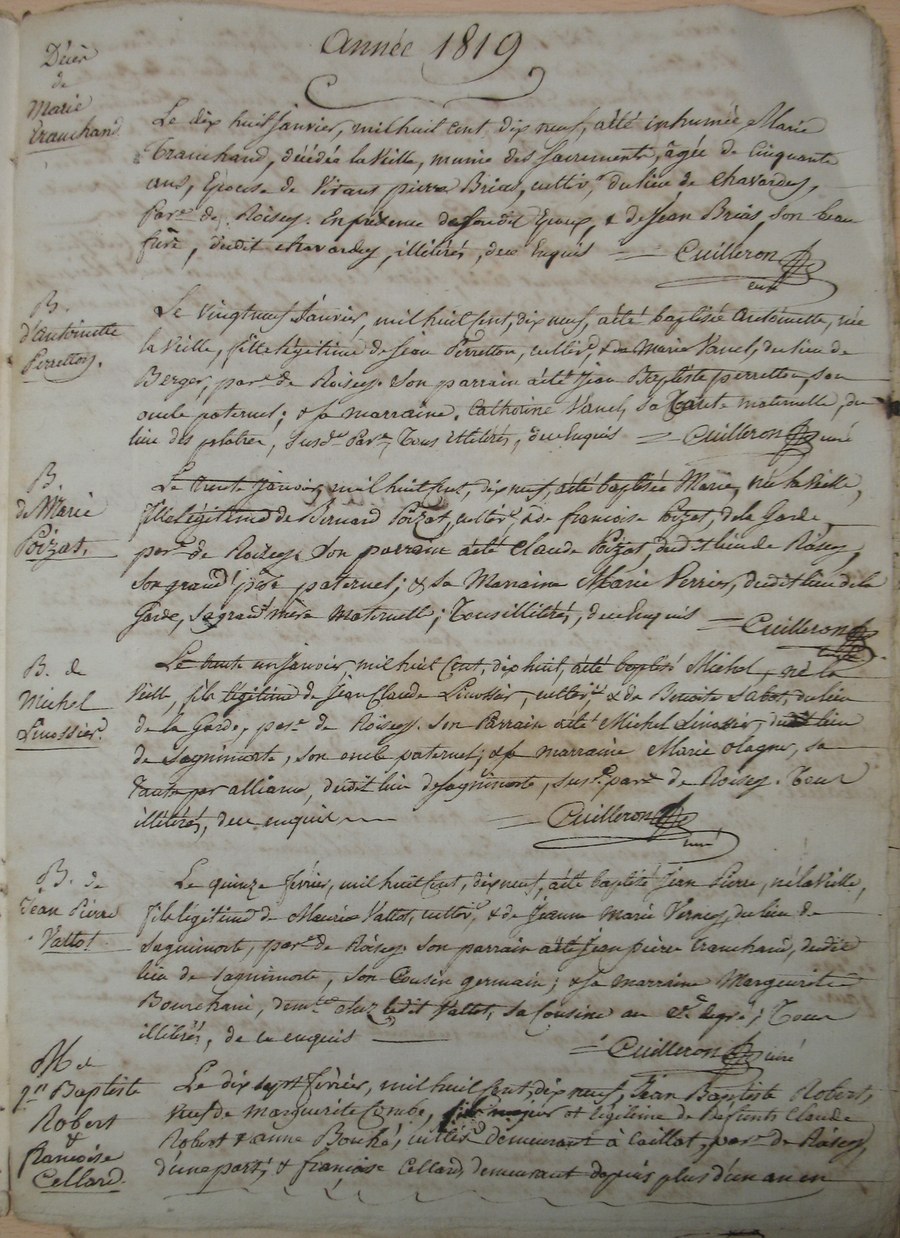 Année 1819
Décès
de
Marie
Tranchand
Le dix huit Janvier, mil huit cent dix neuf, a été inhumée Marie
Tranchand, décédée la veille, munie des Sacrements, âgée de Cinquante
ans, Epouse de pierre Brias, cultiv.r du lieu de Chavardes,
Par.se de Roisey. En présence de Sondit Epoux, & de Jean Brias, son beau
frère, dudit chavardes, illitérés, de ce Enquis = Cuilleron
curé
B.
d'Antoinette
Perretton.
Le vingt neuf Janvier, mil huit Cent, dix neuf, a été baptisée Antoinette, née
la veille, fille légitime de Jean Perretton, cultiv.r & de Marie Vanel, du lieu de
Berger, par.se de Roisey. Son parrain a été Jean Baptiste perretton, son
oncle paternel; & sa marraine, Catherine Vanel, sa Tante maternelle, du
lieu des platre, susd.e Par.se, Tous illitérés, de ce Enquis = Cuilleron curé
B.
de Marie
Poizat.
Le trente Janvier, mil huit Cent, dix neuf, a été baptisée Marie, née la veille,
fille légitime de Bernard Poizat, cultiv.r, & de francoise Poizat, de la Garde,
par.se de Roisey. Son parrain a été Claude Poizat, dudit lieu de Roisey,
son grand père paternel; & sa Marraine Marie Perrier, dudit lieu de la
Garde, sa grand mère maternelle; Tous illitérés, de ce Enquis = Cuilleron
B. de
Michel
Linossier.
Le trente un Janvier mil huit Cent, dix huit, a été baptisé Michel, né la
veille, fils légitime de Jean Claude Linossier, cultiv.r & de Benoite Sabot, du lieu
de la Garde, par.se de Roisey. Son Parrain a été Michel Linossier, dudit lieu
de Sagnimorte, son oncle paternel; & sa marraine Marie olagner, sa
Tante par alliance, dudit lieu de Sagnimorte, sus d.e par.se de Roisey. Tous
illitérés, de ce enquis = Cuilleron
curé
B. de
Jean Pierre
Vallot.
Le quinze février, mil huit Cent, dix neuf, a été baptisé Jean Pierre, né la veille,
fils légitime de Maurice Vallot, cultiv.r, & de Jeanne Marie Verney, du lieu de
Sagnimorte, par.se de Roisey. Son parrain a été Jean pierre Tranchand, dudit
lieu de Sagnimorte, son Cousin germain; & sa marraine Marguerite
Bourchani, dem.te chez ledit Vallot, sa Cousine au 2.e degré; Tous
illitérés, de ce enquis = Cuilleron curé
M. de
J.n Baptiste
Robert
&
francoise
Cellard.
Le dix sept février, mil huit Cent, dix neuf, Jean Baptiste Robert,
veuf de Marguerite Combe, fils majeur et légitime de defunts Claude
Robert & anne Bouché, cultiv.r demeurant à Caillat, par.se de Roisey,
d'une part, & françoise Cellard, demeurant depuis plus d'un an en